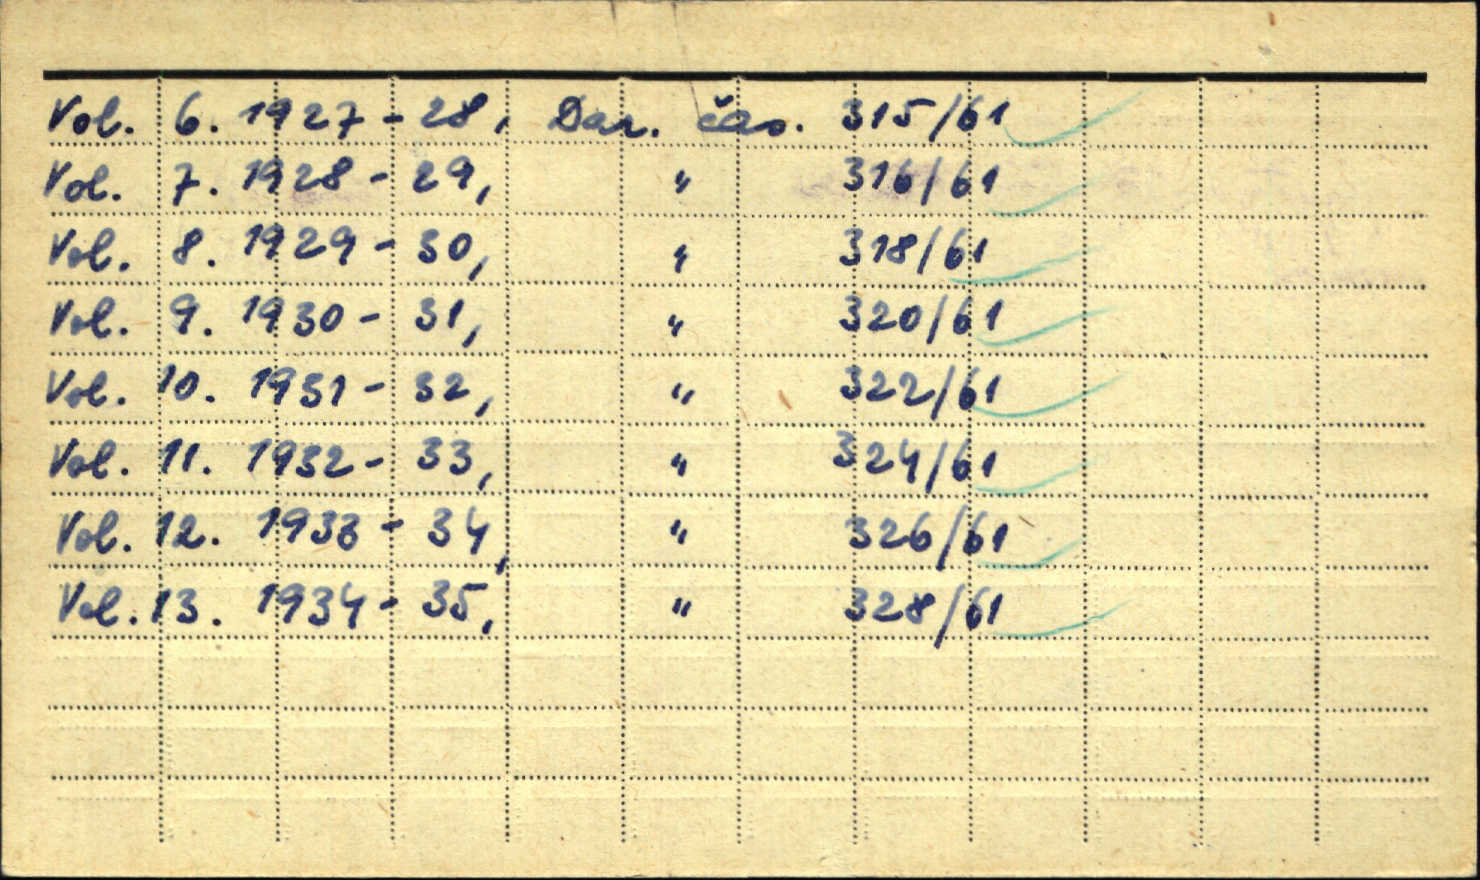 Vol. 6. 1927 - 28, Dar. čas. 315/61
Vol. 7. 1928 - 29, " 316/61
Vol. 8. 1929 - 30, " 318/61
Vol. 9. 1930 - 31, " 320/61
Vol. 10. 1931 - 32, " 322/61
Vol. 11. 1932 - 33, " 324/61
Vol. 12. 1933 - 34, " 326/61
Vol. 13. 1934 - 35, " 328/61